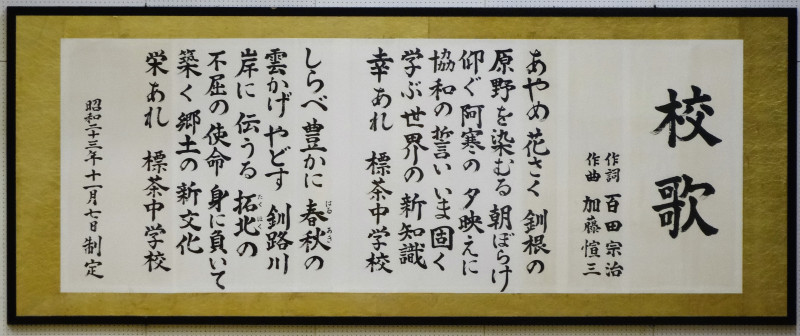 校歌
作詞 百田宗治
作曲 加藤愃三
あやめ花さく 釧根の
原野を染むる 朝ぼらけ
仰ぐ阿寒の 夕映えに
協和の誓い いま固く
学ぶ世界の 新知識
幸あれ 標茶中学校
しらべ豊かに 春秋の
はる あき
雲かげやどす 釧路川
岸に伝うる 拓北の
たく ほく
不屈の使命 身に負いて
築く郷土の 新文化
栄あれ 標茶中学校
昭和二十三年十一月七日制定